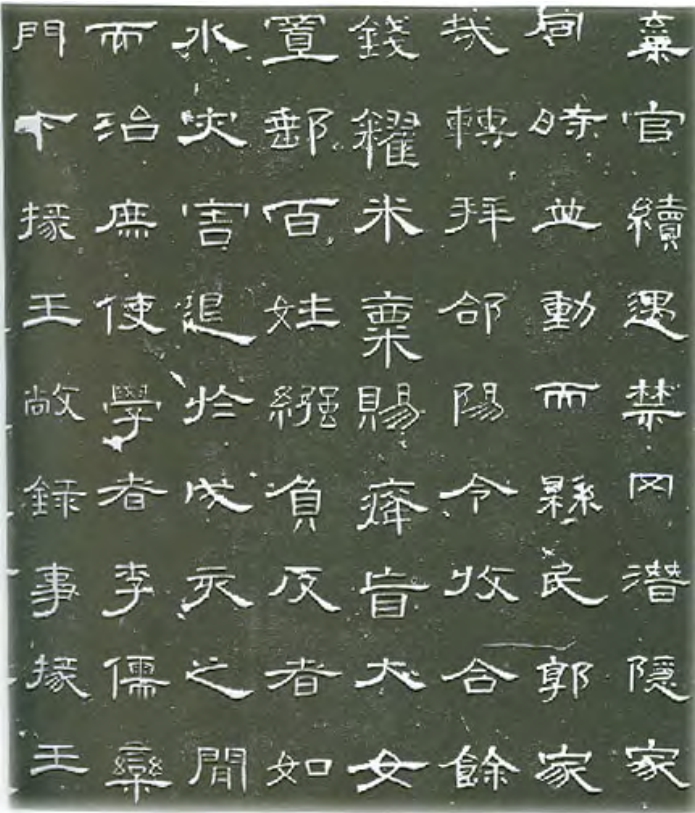 棄官續遇禁冈潛隱家
同時並動而縣民郭家
哉轉拜郃陽令收合餘
錢糴米粟賜癃盲大女
置郵百姓繈負反者如
水灾害退於戌亥之間
而治庶使學者李儒欒
門下掾王敞録事掾王